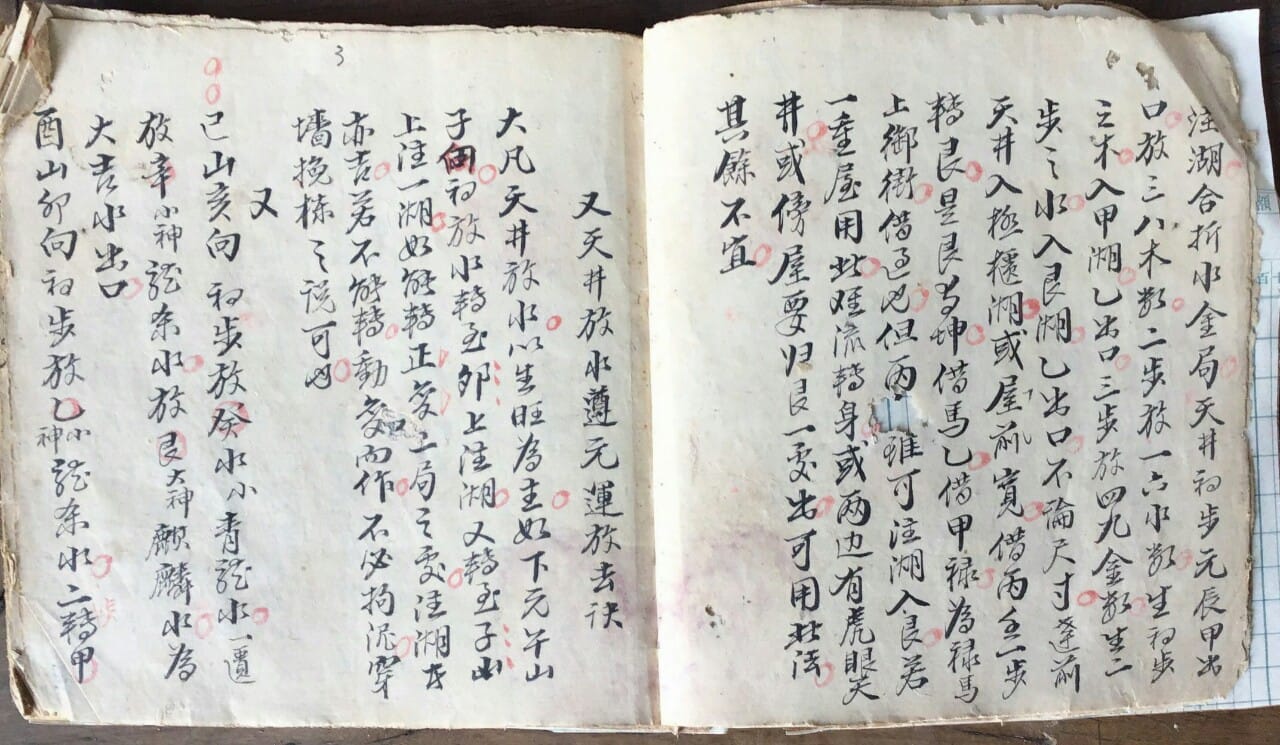 注湖合折水金局天井初步元辰甲出
口放三八木数二步放一六水数生初步
之木入甲湖乙出口三步放四九金数生二
步之水入艮湖乙出口不論尺寸逢前
天井入極櫃湖或屋前寬借丙壬一步
轉艮是艮為坤借馬乙借甲禄為禄馬
上御街借過也但丙 雖可注湖入艮若
一重屋用此难流轉身或两边有虎眼天
井或傍屋要归艮一處出可用此法
其餘不宜
又天井放水遵元運放去訣
大凡天井放水以生旺為主如下元午山
子向初放水轉至卯上注湖又轉至子山
上注一湖如能轉正爻二局之處注湖者
亦吉若不能轉動爻向作不必拘泥穿
墻挽栋之說可也
又
己山亥向初步放癸水小青龍水一還
放辛小神龍条水放艮大神麒麟水為
大吉水出口
酉山卯向初步放乙小神龍条水二轉甲
3